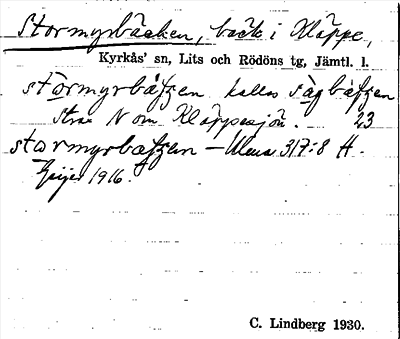 Stormyrbäcken, bäck i Kläppe,
Kyrkås' sn, Lits och Rödöns tg, Jämtl. l.
stormyrbäʃʒen kallas sågbäʃʒen
strax N om Kläppesjön. 23
stormyrbäʃʒen – 317:8 H.
Geijer 1916.
C. Lindberg 1930.